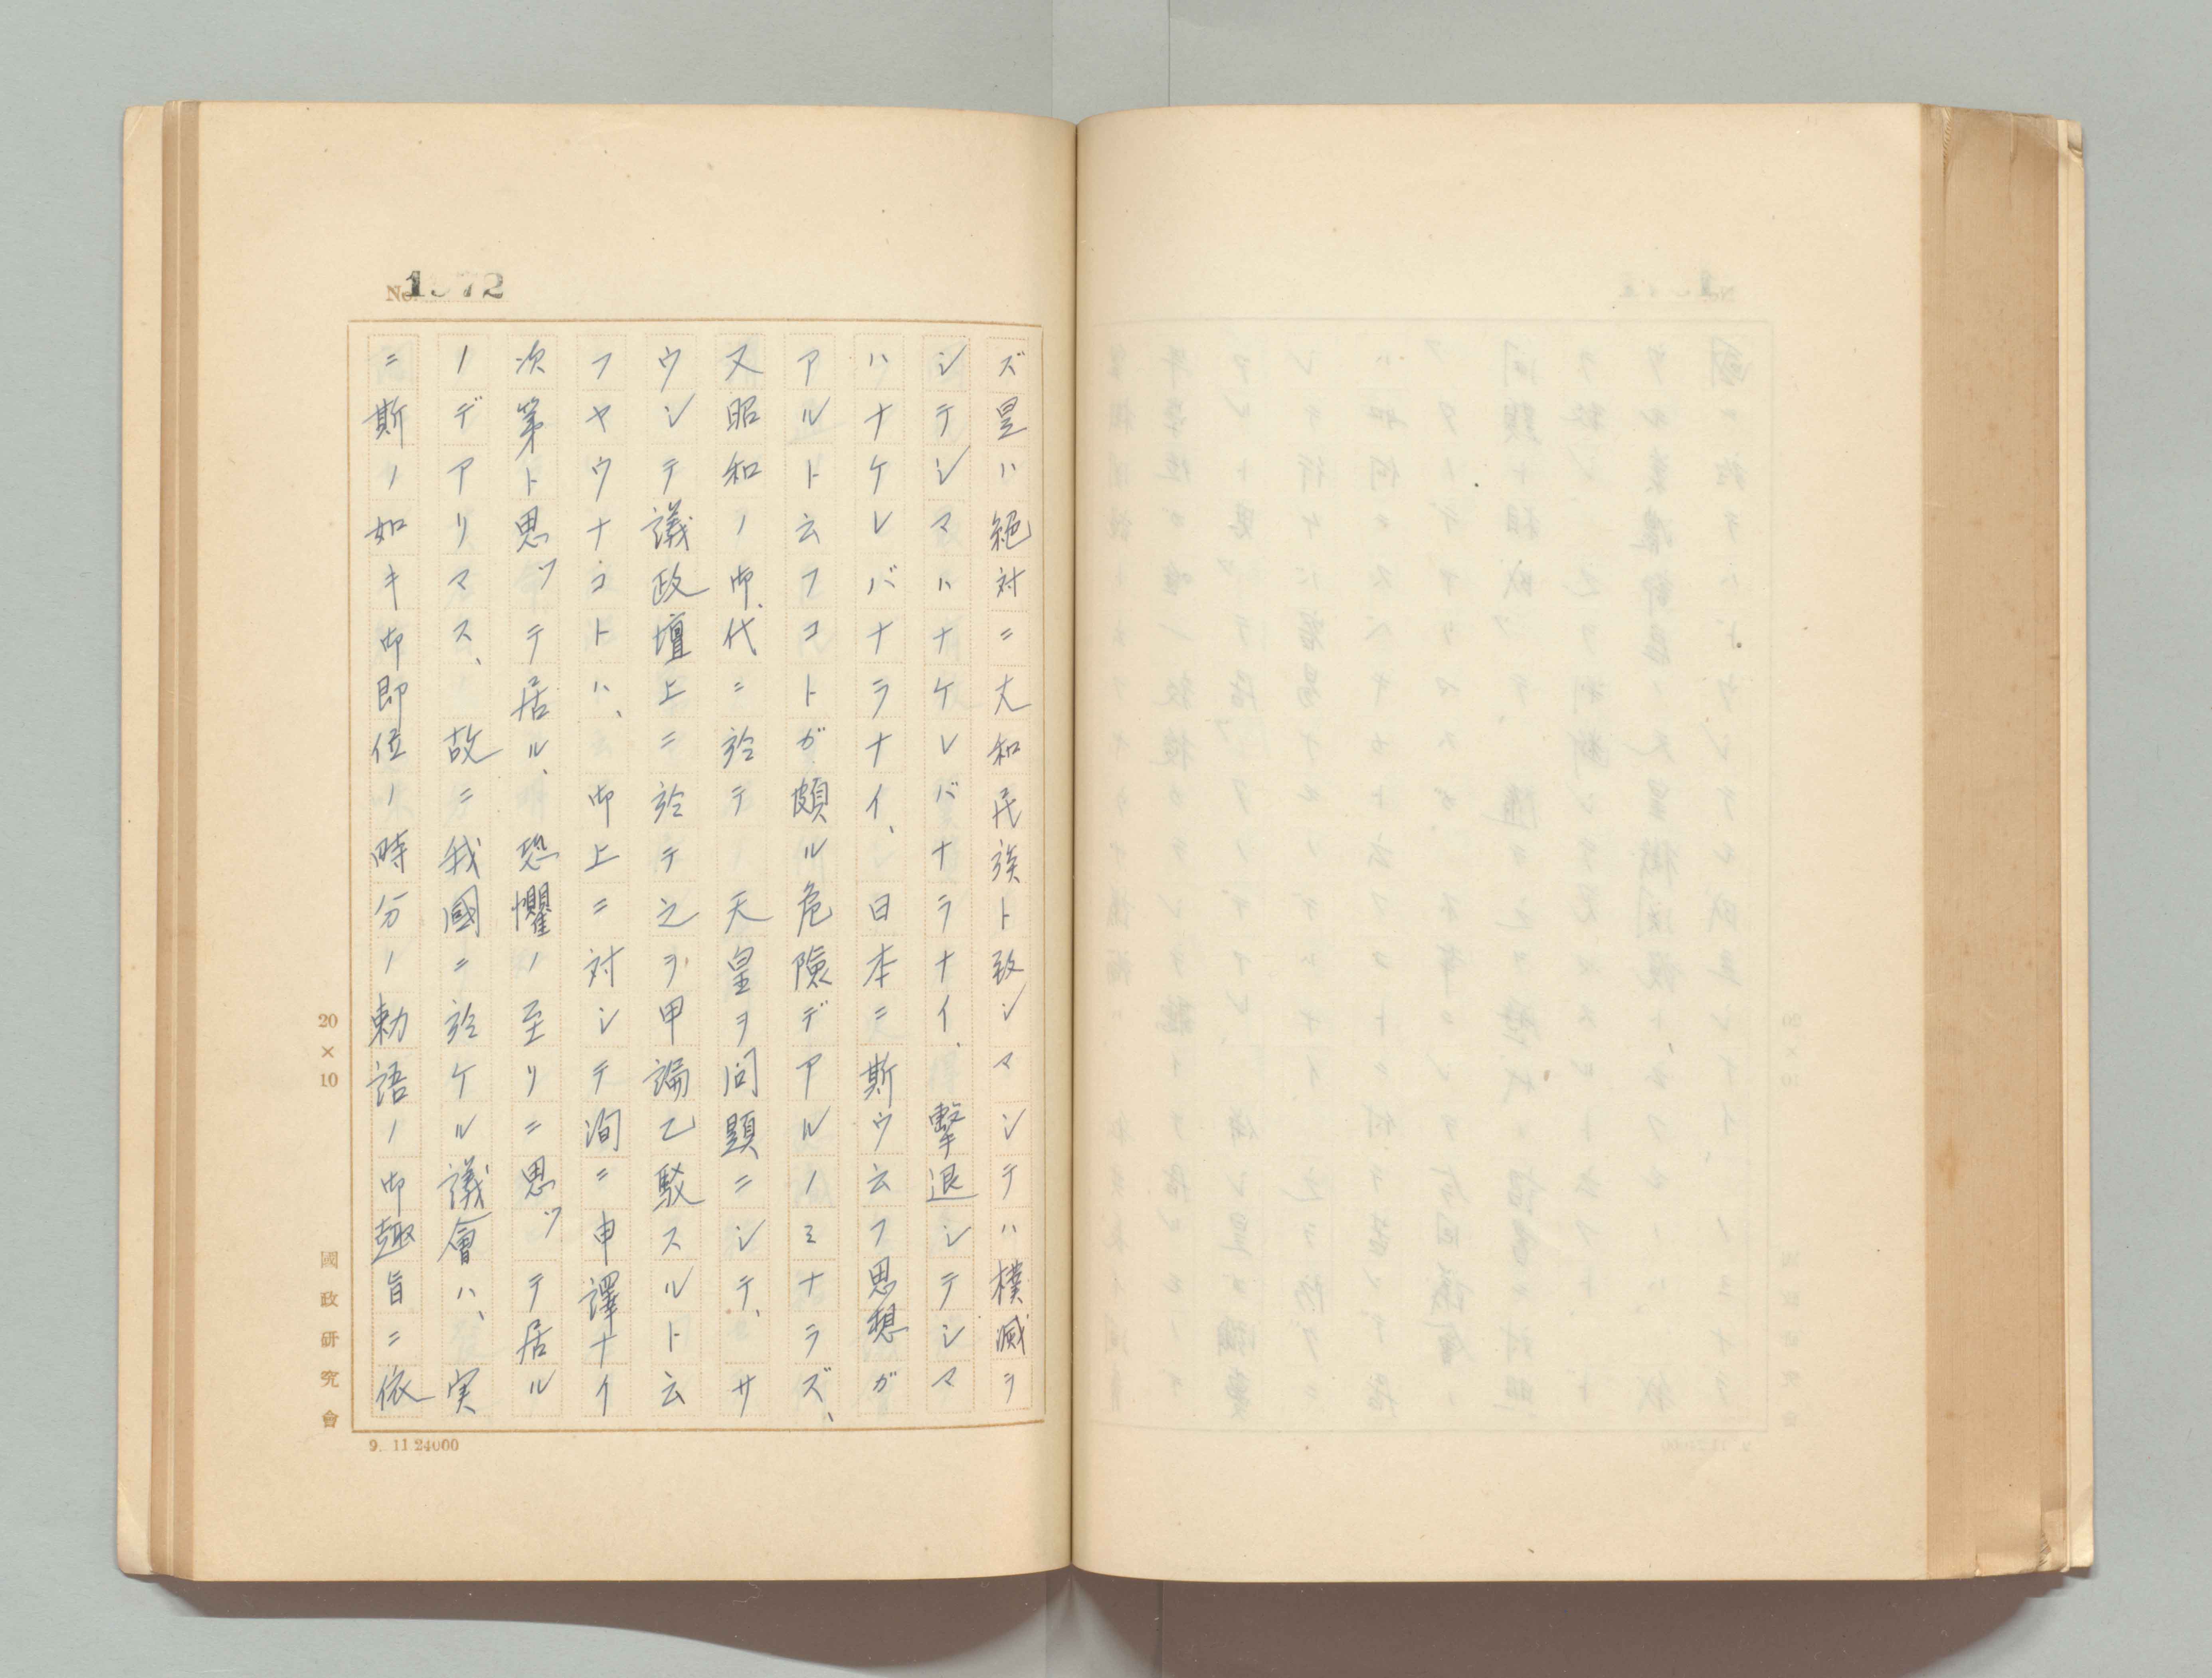 ズ是ハ絶対ニ大和民族ト致シマシテハ樸滅ヲ
シテシマハナケレバナラナイ、撃退シテシマ
ハナケレバナラナイ、日本ニ斯ウ云フ思想ガ
アルト云フコトガ頗ル危險デアルノミナラズ、
又昭和ノ御代ニ於テ　天皇ヲ問題ニシテ、サ
ウシテ議政壇上ニ於テ之ヲ甲論乙駁スルト云
フヤウナコトハ、御上ニ対シテ洵ニ申譯ナイ
次第ト思ツテ居ル、恐懼ノ至リニ思ツテ居ル
ノデアリマス、故ニ我國ニ於ケル議會ハ、実
ニ斯ノ如キ御即位ノ時分ノ勅語ノ御趣旨ニ依
20×10
國政研究會
9. 11 24000